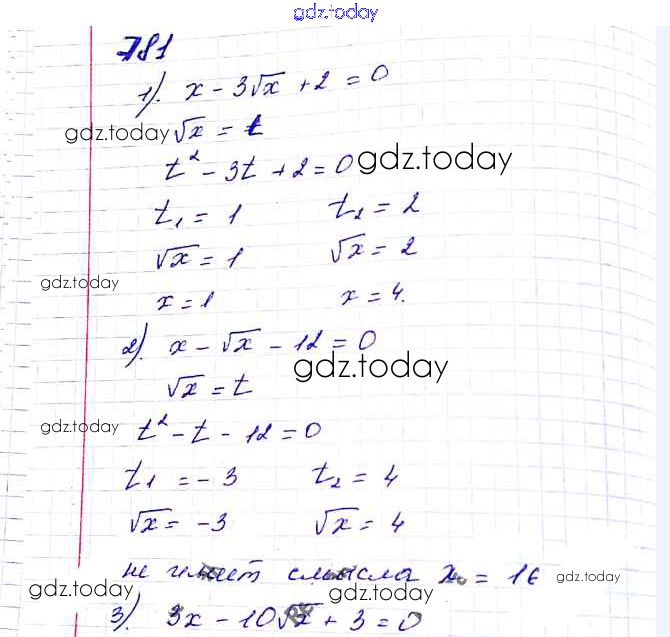 gdz.today
781
1). x - 3√x + 2 = 0
gdz.today √x = t
t² - 3t + 2 = 0 gdz.today
t₁ = 1 t₂ = 2
√x = 1 √x = 2
gdz.today
x = 1 x = 4.
2). x - √x - 12 = 0
gdz.today
√x = t
gdz.today t² - t - 12 = 0
t₁ = -3 t₂ = 4
√x = -3 √x = 4
не имеет смысла x = 16 gdz.today
gdz.today gdz.today
3). 3x - 10√x + 3 = 0